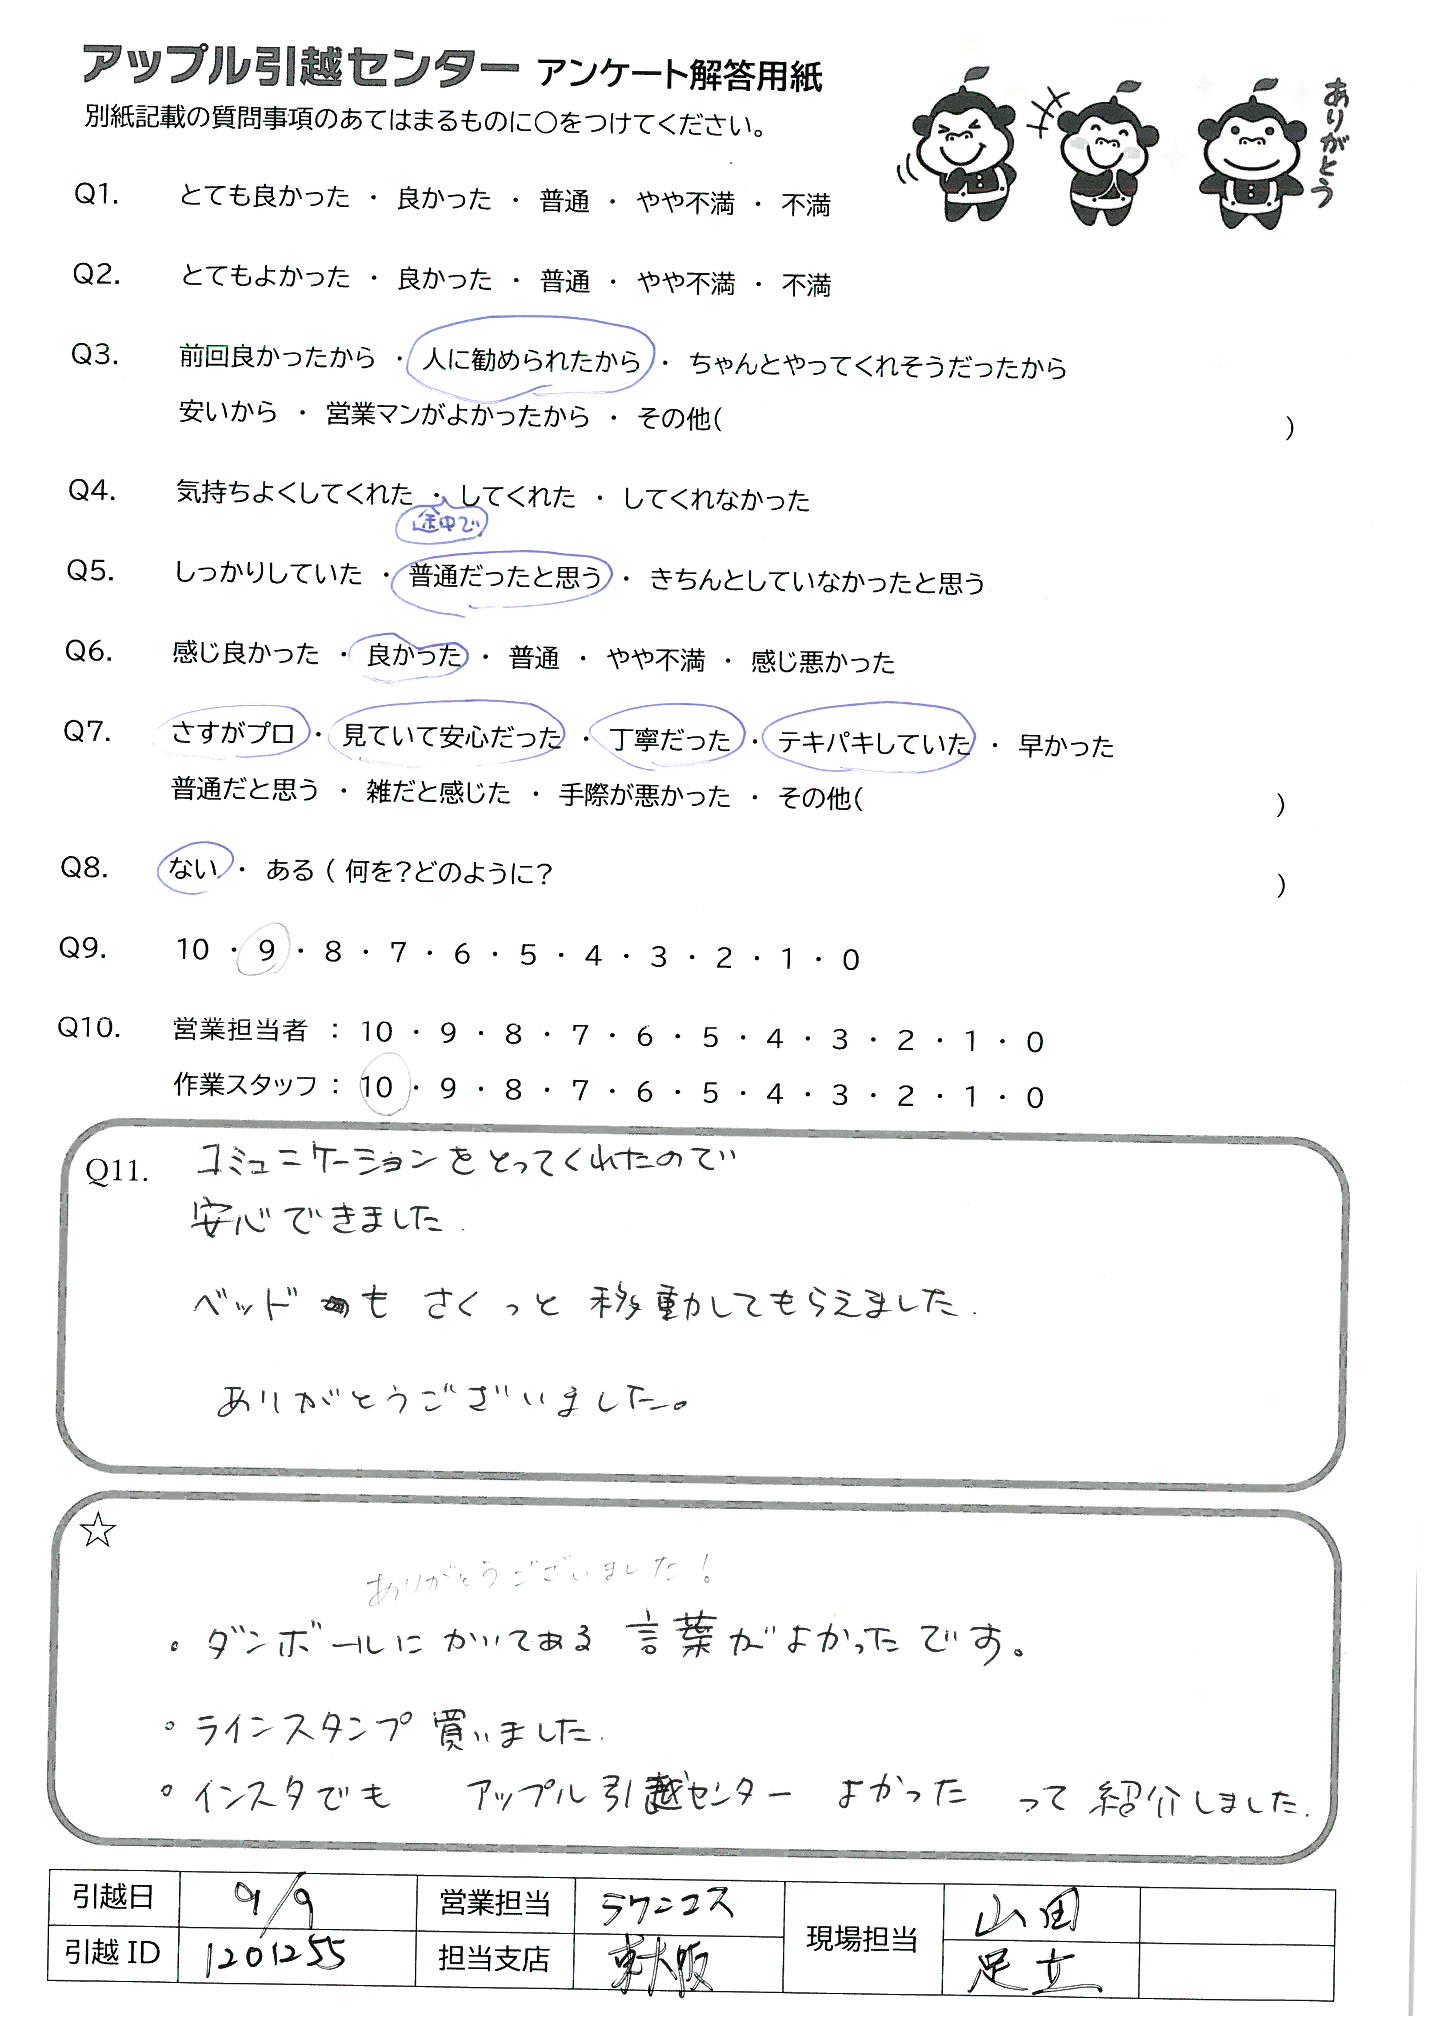 アップル引越センター アンケート解答用紙
別紙記載の質問事項のあてはまるものに○をつけてください。
ありがとう
Q1. とても良かった ・ 良かった ・ 普通 ・ やや不満 ・ 不満
Q2. とてもよかった ・ 良かった ・ 普通 ・ やや不満 ・ 不満
Q3. 前回良かったから ・ 人に勧められたから ・ ちゃんとやってくれそうだったから
安いから ・ 営業マンがよかったから ・ その他( )
Q4. 気持ちよくしてくれた ・ してくれた ・ してくれなかった
途中で
Q5. しっかりしていた ・ 普通だったと思う ・ きちんとしていなかったと思う
Q6. 感じ良かった ・ 良かった ・ 普通 ・ やや不満 ・ 感じ悪かった
Q7. さすがプロ ・ 見ていて安心だった ・ 丁寧だった ・ テキパキしていた ・ 早かった
普通だと思う ・ 雑だと感じた ・ 手際が悪かった ・ その他( )
Q8. ない ・ ある ( 何を?どのように? )
Q9. 10 ・ 9 ・ 8 ・ 7 ・ 6 ・ 5 ・ 4 ・ 3 ・ 2 ・ 1 ・ 0
Q10. 営業担当者 : 10 ・ 9 ・ 8 ・ 7 ・ 6 ・ 5 ・ 4 ・ 3 ・ 2 ・ 1 ・ 0
作業スタッフ : 10 ・ 9 ・ 8 ・ 7 ・ 6 ・ 5 ・ 4 ・ 3 ・ 2 ・ 1 ・ 0
Q11. コミュニケーションをとってくれたので
安心できました.
ベッドも さくっと 移動してもらえました.
ありがとうございました。
☆
ありがとうございました!
・ダンボールにかいてある 言葉がよかったです。
・ラインスタンプ買いました.
・インスタでも アップル引越センター よかった って 紹介しました.
引越日 9/9 営業担当 ラクニコス 現場担当 山田
引越 ID 1201255 担当支店 東大阪 足立